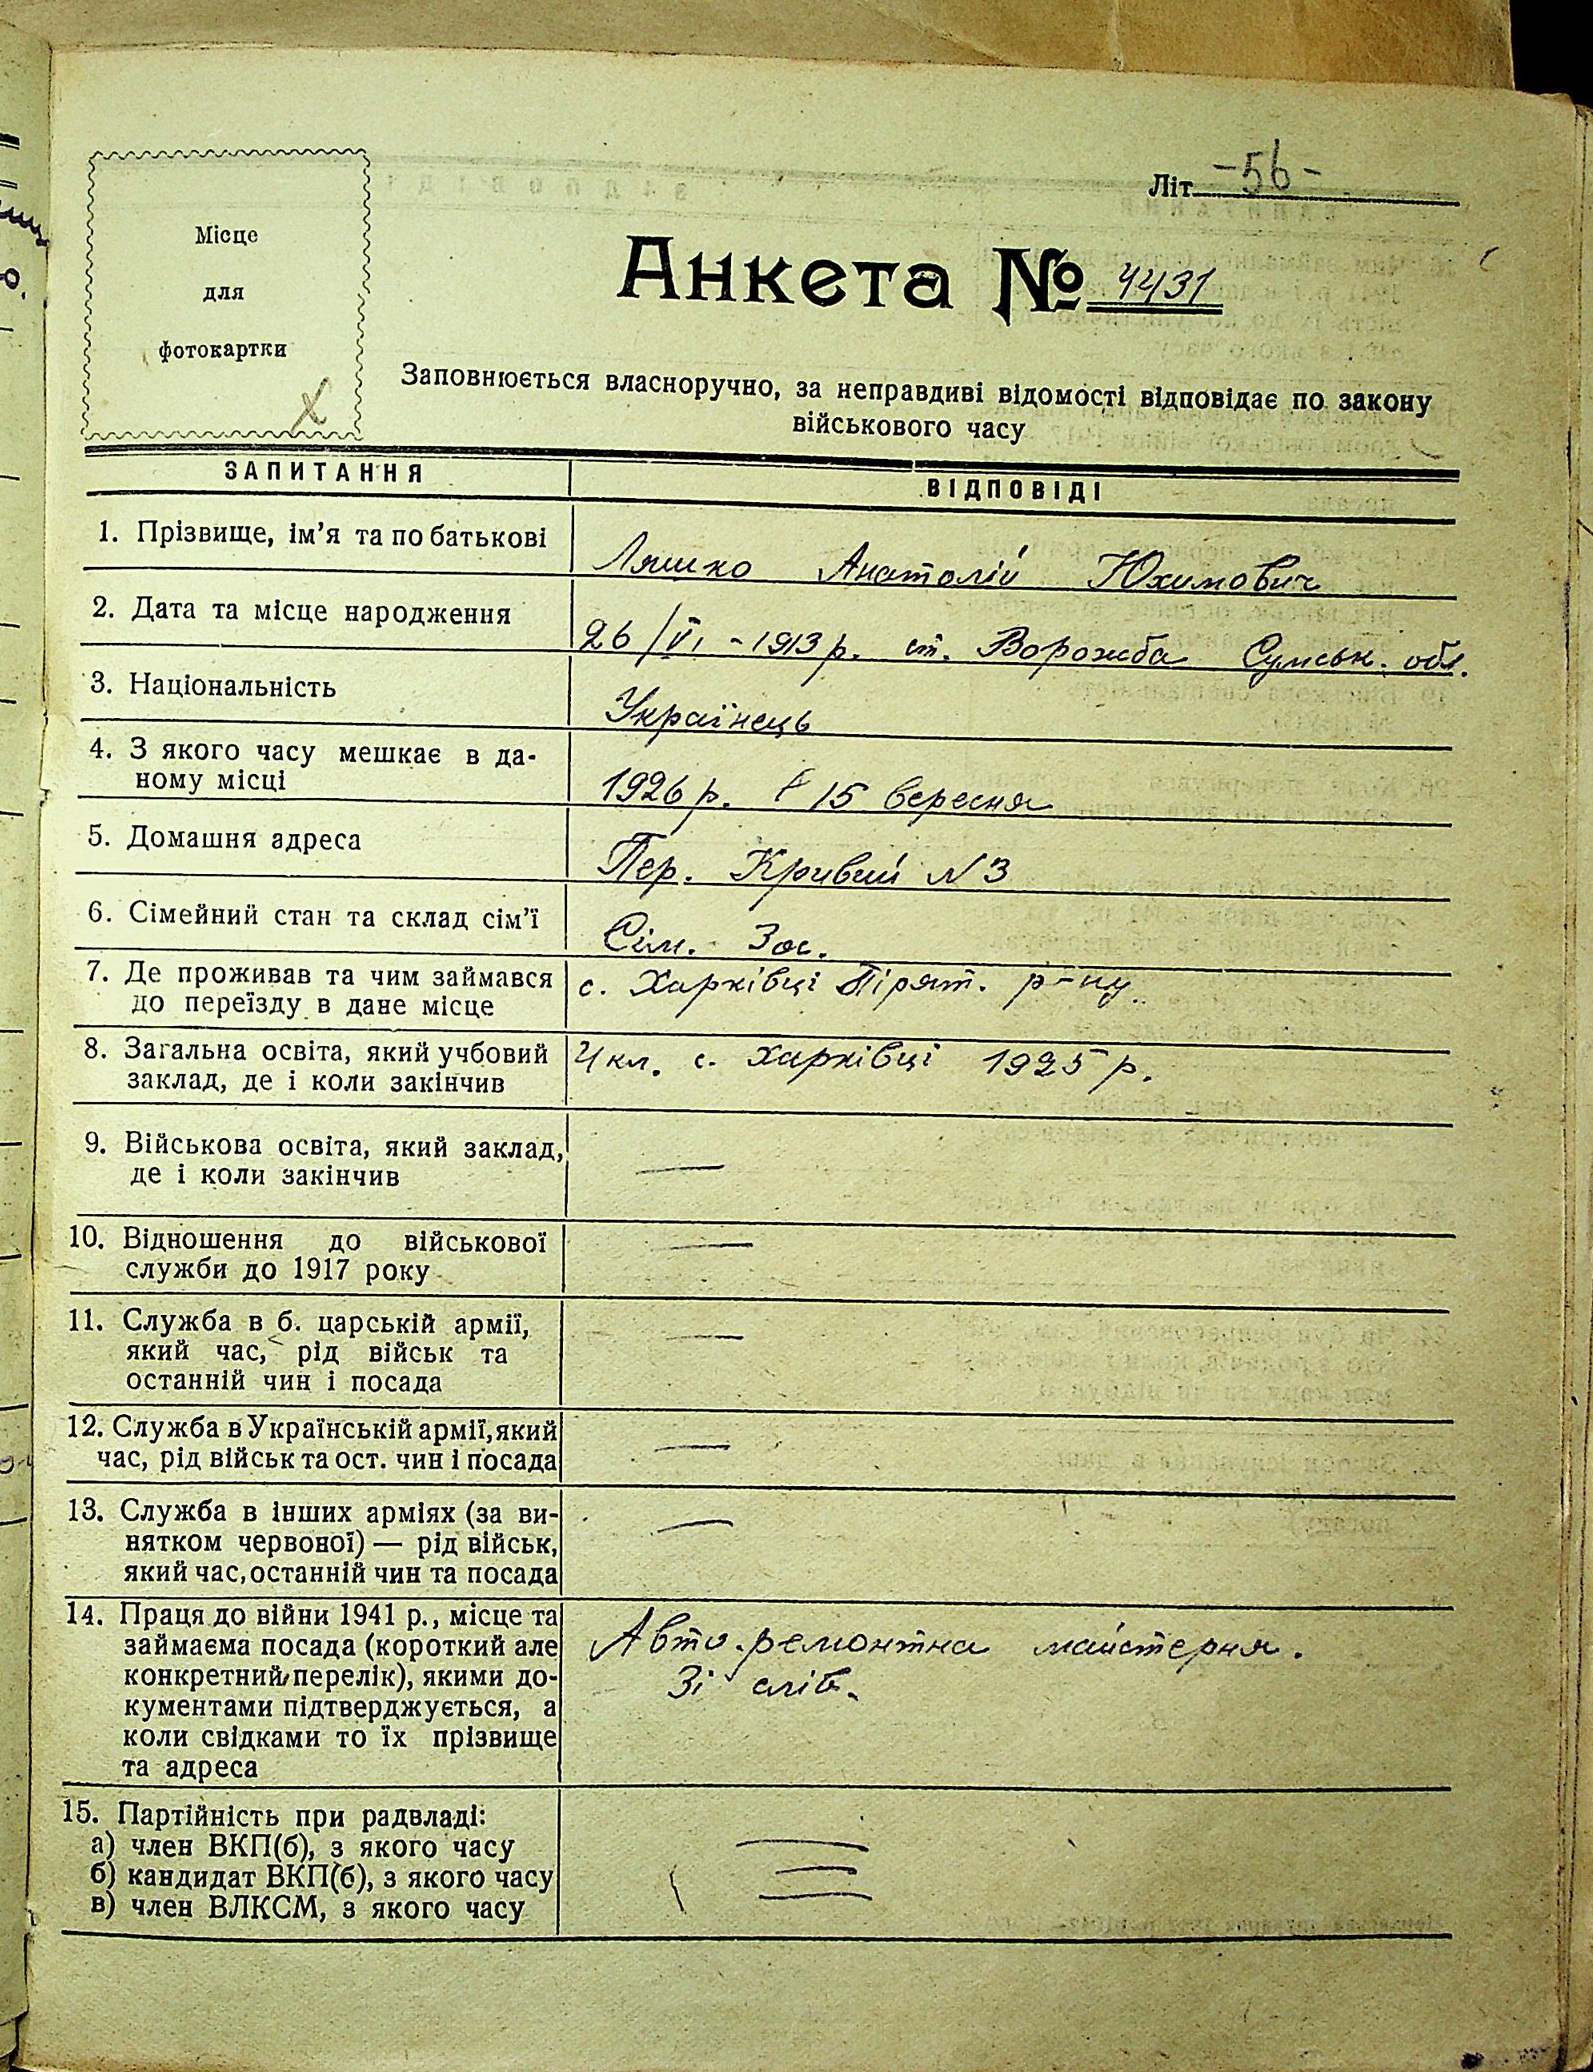 Місце
для
фотокартки
Літ. -56-
Анкета № 4431
Заповнюється власноручно, за неправдиві відомості відповідає по закону
військового часу
ЗАПИТАННЯ
ВІДПОВІДІ
1. Прізвище, ім'я та по батькові
Ляшко Анатолій Юхимович
2. Дата та місце народження
26/VI - 1913 р. ст. Ворожба Сумськ. обл.
3. Національність
Українець
4. З якого часу мешкає в да-
ному місці
1926 р. 15 вересня
5. Домашня адреса
Пер. Кривий N 3
6. Сімейний стан та склад сім'ї
Сім. 3 ос.
7. Де проживав та чим займався
до переїзду в дане місце
с. Харківці Пірят. р-ну.
8. Загальна освіта, який учбовий
заклад, де і коли закінчив
4 кл. с. Харківці 1925 р.
9. Військова освіта, який заклад,
де і коли закінчив
—
10. Відношення до військової
служби до 1917 року
—
11. Служба в б. царській армії,
який час, рід військ та
останній чин і посада
—
12. Служба в Українській армії, який
час, рід військ та ост. чин і посада
—
13. Служба в інших арміях (за ви-
нятком червоної) — рід військ,
який час, останній чин та посада
—
14. Праця до війни 1941 р., місце та
займаєма посада (короткий але
конкретний перелік), якими до-
кументами підтверджується, а
коли свідками то їх прізвище
та адреса
Авто-ремонтна майстерня.
Зі слів.
15. Партійність при радвладі:
а) член ВКП(б), з якого часу
—
б) кандидат ВКП(б), з якого часу
—
в) член ВЛКСМ, з якого часу
—